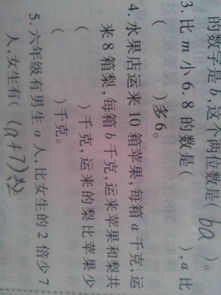 的数字是b,这个两位数是( ba )。
3. 比m小6.8的数是(      ),a比
(      )多6。
4. 水果店运来10箱苹果,每箱a千克,运
来8箱梨,每箱b千克,运来苹果和梨共
(      )千克,运来的梨比苹果少
(      )千克。
5. 六年级有男生a人,比女生的2倍少7
人,女生有( (a+7)÷2